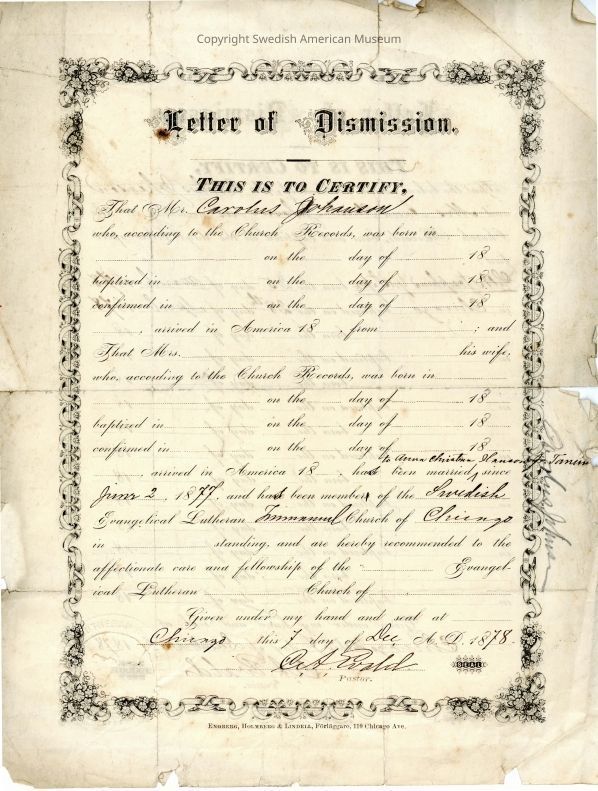 Copyright Swedish American Museum
Letter of Dismission.
THIS IS TO CERTIFY,
That Mr. Carolus Johanson
who, according to the Church Records, was born in
on the day of 18
baptized in on the day of 18
confirmed in on the day of 18
, arrived in America 18 , from ; and
That Mrs. his wife,
who, according to the Church Records, was born in
on the day of 18
baptized in on the day of 18
confirmed in on the day of 18
to Anna Christina
arrived in America 18 , has been married, since
June 2, 1877. and has been member of the Swedish
Evangelical Lutheran Immanuel Church of Chicago
in standing, and are hereby recommended to the
affectionate care and fellowship of the Evangel-
ical Lutheran Church of
Given under my hand and seal at
Chicago this 7 day of Dec A. D. 1878.
SEAL
Pastor.
ENGBERG, HOLMBERG & LINDELL, Förläggare, 119 Chicago Ave.